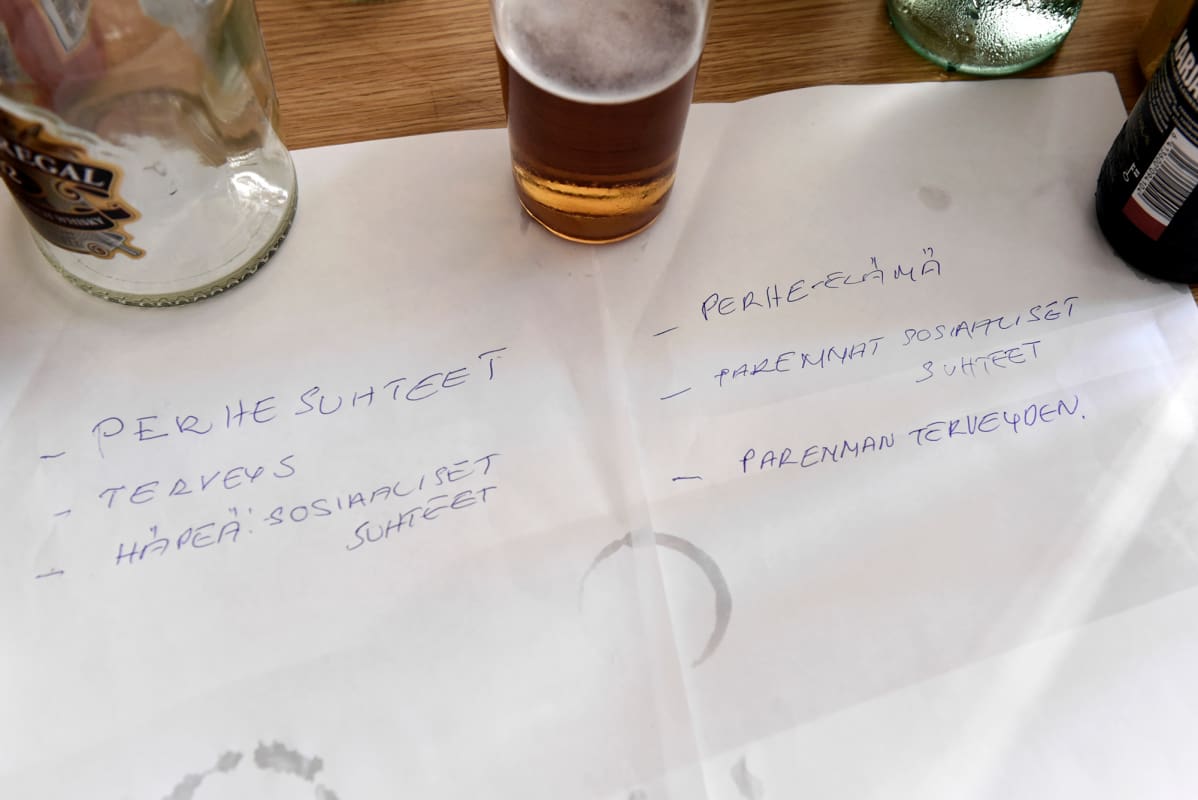 REGAL
WHISKY
- PERHESUHTEET
- TERVEYS
- HÄPEÄ: SOSIAALISET
SUHTEET
- PERHE-ELÄMÄ
- PAREMMAT SOSIAALISET
SUHTEET
- PAREMMAN TERVEYDEN.